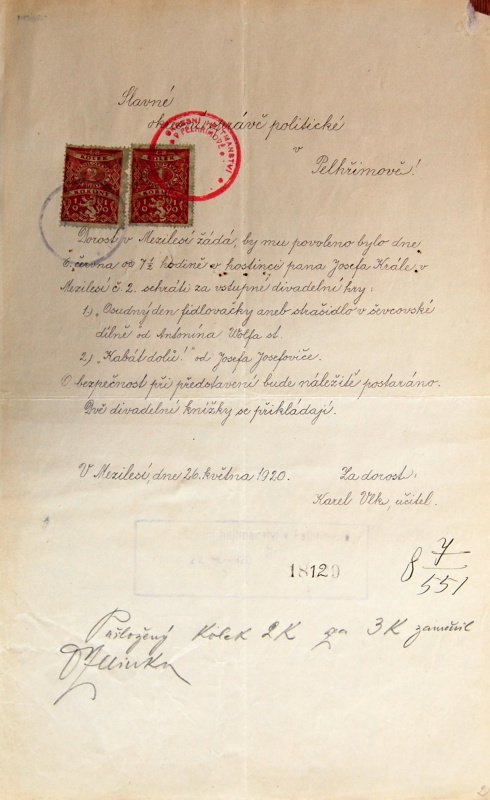 Slavné
okresní správě politické
v
Pelhřimově!
KOLEK
KORUNY
1919
KOLEK
1
KORUNA
1919
V PELHŘIMOVĚ
Dorost v Mezilesí žádá, by mu povoleno bylo dne
6. června od 7½ hodině v hostinci pana Josefa Krále v
Mezilesí č. 2. sehráti za vstupné divadelní hry:
1) „Osudný den fidlovačky aneb strašidlo v ševcovské
dílně" od Antonína Wolfa st.
2) „Kabát dolů!" od Josefa Josefoviče.
O bezpečnost při představení bude náležitě postaráno.
Dvě divadelní knížky se přikládají.
V Mezilesí, dne 26. května 1920.
Za dorost:
Karel Vlk, učitel.
18120
8 7/551
Přiložený kolek 2K za 3K zaměnil